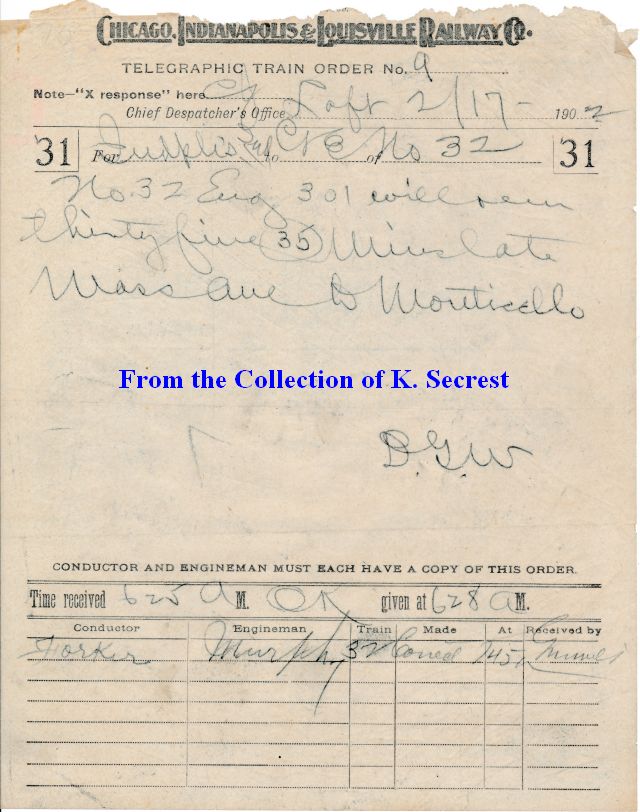 CHICAGO, INDIANAPOLIS & LOUISVILLE RAILWAY CO.
TELEGRAPHIC TRAIN ORDER No. 9
Note—"X response" here
Chief Despatcher's Office Laft 2/17- 1902
31 For Indpl's to C & E of No 32 31
No. 32 Eng 301 will run
thirty five (35) Mins late
Mass Ave to Monticello
From the Collection of K. Secrest
D.G.W
CONDUCTOR AND ENGINEMAN MUST EACH HAVE A COPY OF THIS ORDER.
Time received 625 A M. OK given at 628 a M.
Conductor Engineman Train Made At Received by
Forker Murphy 32 Comd 645